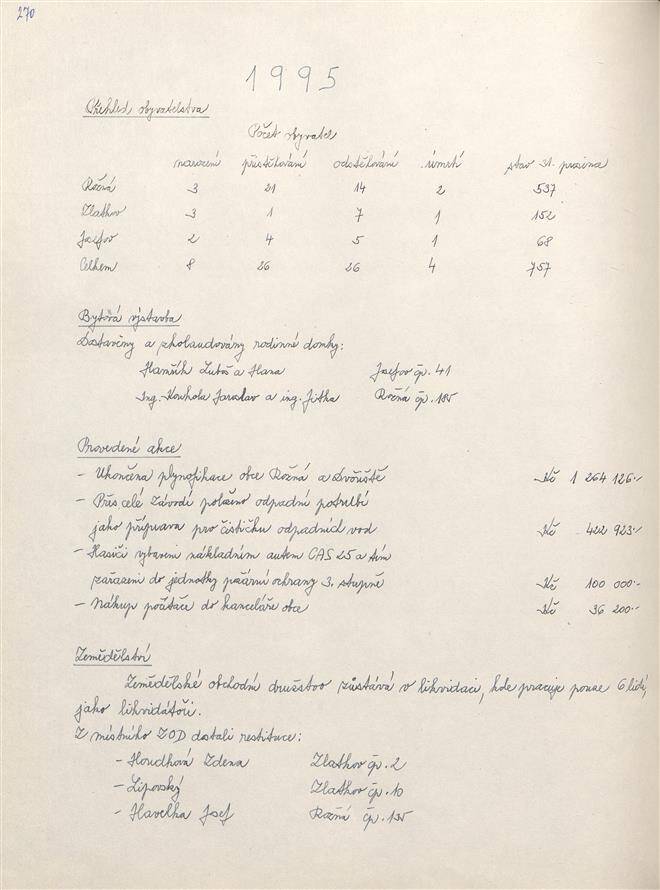 270
1995
Přehled obyvatelstva
Počet obyvatel
narození přistěhování odstěhování úmrtí stav 31. prosince
Rožná 3 21 14 2 537
Zlatkov 3 1 7 1 152
Josefov 2 4 5 1 68
Celkem 8 26 26 4 757
Bytová výstavba
Dostavěny a zkolaudovány rodinné domky:
Luboš a Hana Josefov čp. 41
Ing. Kouhola Jaroslav a ing. Jitka Rožná čp. 185
Provedené akce
- Ukončena plynofikace obce Rožná a Dvořiště Kč 1 264 126.-
- Přes celé Závodí položeno odpadní potrubí
jako příprava pro čističku odpadních vod Kč 422 923.-
- Hasiči vybaveni nákladním autem CAS 25 a tím
zařazeni do jednotky požární ochrany 3. stupně Kč 100 000.-
- Nákup počítače do kanceláře obce Kč 36 200.-
Zemědělství
Zemědělské obchodní družstvo zůstává v likvidaci, kde pracuje pouze 6 lidí,
jako likvidátoři.
Z místního ZOD dostali restituce:
- Houdková Zdena Zlatkov čp. 2
- Lipovský Zlatkov čp. 10
- Havelka Josef Rožná čp. 135